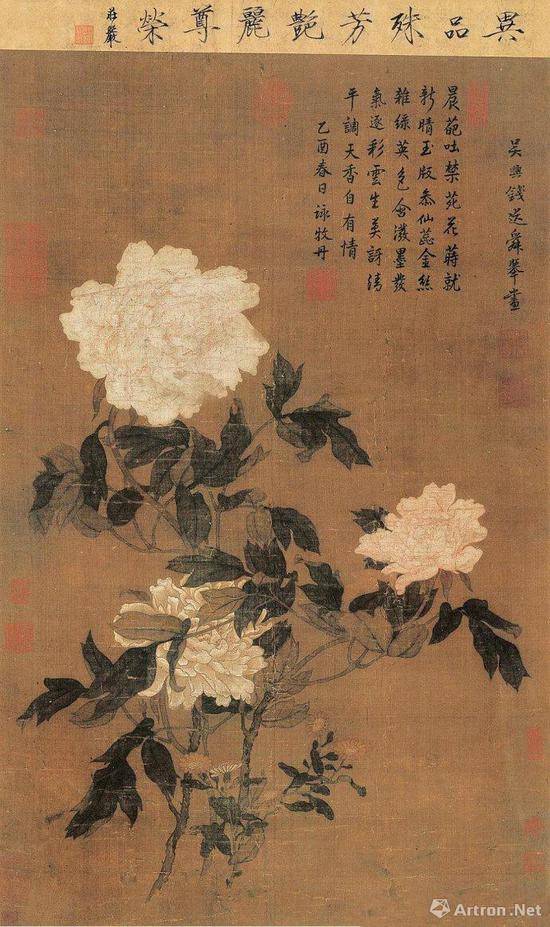 異品殊芳艷麗尊榮
莊嚴
吳興錢選舜舉畫
晨葩吐禁苑花蒔就
新晴玉版叅仙蕊金絲
雜綠英色含潑墨發
氣逐彩雲生莫訝清
平調天香自有情
乙酉春日詠牡丹
Artron.Net